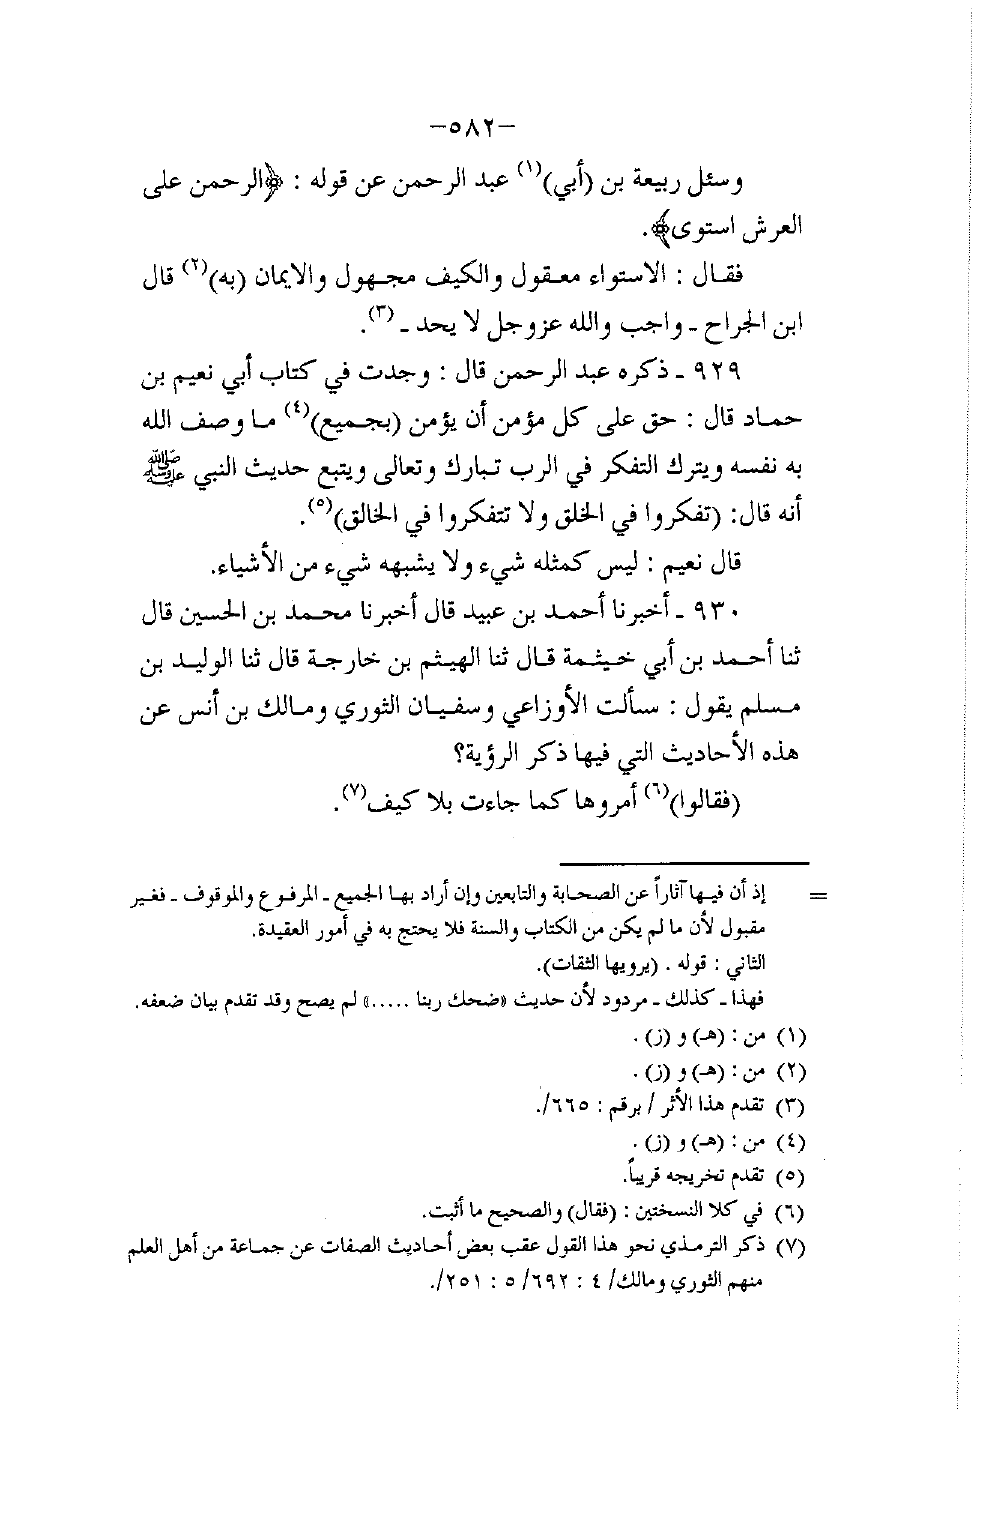 -٥٨٢-
وسئل ربيعة بن (أبي)(١) عبد الرحمن عن قوله : ﴿الرحمن على
العرش استوى﴾.
فقال : الاستواء معقول والكيف مجهول والايمان (به)(٢) قال
ابن الجراح - واجب والله عزوجل لا يحد - (٣).
٩٢٩ - ذكره عبد الرحمن قال : وجدت في كتاب أبي نعيم بن
حماد قال : حق على كل مؤمن أن يؤمن (بجميع)(٤) ما وصف الله
به نفسه ويترك التفكر في الرب تبارك وتعالى ويتبع حديث النبي ﷺ
أنه قال: (تفكروا في الخلق ولا تتفكروا في الخالق)(٥).
قال نعيم : ليس كمثله شيء ولا يشبهه شيء من الأشياء.
٩٣٠ - أخبرنا أحمد بن عبيد قال أخبرنا محمد بن الحسين قال
ثنا أحمد بن أبي خيثمة قال ثنا الهيثم بن خارجة قال ثنا الوليد بن
مسلم يقول : سألت الأوزاعي وسفيان الثوري ومالك بن أنس عن
هذه الأحاديث التي فيها ذكر الرؤية؟
(فقالوا)(٦) أمروها كما جاءت بلا كيف(٧).
= إذ أن فيها آثاراً عن الصحابة والتابعين وإن أراد بها الجميع - المرفوع والموقوف - فغير
مقبول لأن ما لم يكن من الكتاب والسنة فلا يحتج به في أمور العقيدة.
الثاني : قوله . (يرويها الثقات).
فهذا - كذلك - مردود لأن حديث «ضحك ربنا .....» لم يصح وقد تقدم بيان ضعفه.
(١) من : (هـ) و (ز) .
(٢) من : (هـ) و (ز) .
(٣) تقدم هذا الأثر / برقم : ٦٦٥/.
(٤) من : (هـ) و (ز) .
(٥) تقدم تخريجه قريباً.
(٦) في كلا النسختين : (فقال) والصحيح ما أثبت.
(٧) ذكر الترمذي نحو هذا القول عقب بعض أحاديث الصفات عن جماعة من أهل العلم
منهم الثوري ومالك/ ٤ : ٦٩٢/ ٥ : ٢٥١/.